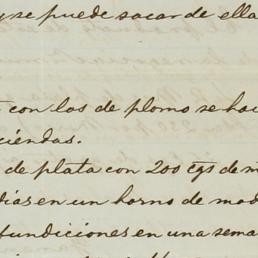 y se puede sacar de ella
con los de plomo se hac
ciendas.
de plata con 200 cgs de m
dias en un horno de mod
fundiciones en una sema